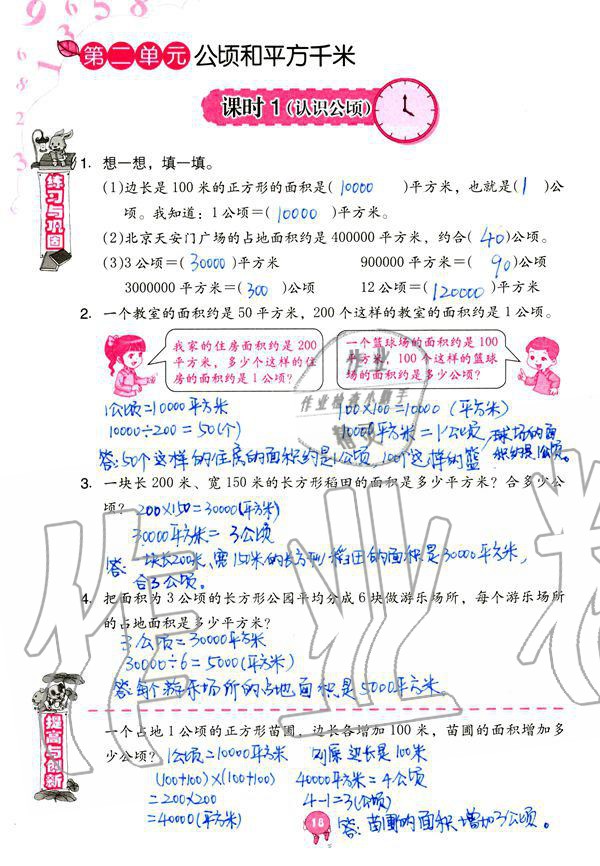 第二单元 公顷和平方千米
课时1(认识公顷)
练习与巩固
1. 想一想，填一填。
(1)边长是100米的正方形的面积是( 10000 )平方米，也就是( 1 )公
顷。我知道：1公顷=( 10000 )平方米。
(2)北京天安门广场的占地面积约是400000平方米，约合( 40 )公顷。
(3)3公顷=( 30000 )平方米 900000平方米=( 90 )公顷
3000000平方米=( 300 )公顷 12公顷=( 120000 )平方米
2. 一个教室的面积约是50平方米，200个这样的教室的面积约是1公顷。
我家的住房面积约是200
平方米，多少个这样的住
房的面积约是1公顷？
一个篮球场的面积约是100
平方米，100个这样的篮球
场的面积约是多少公顷？
1公顷=10000平方米
10000÷200=50(个)
答:50个这样的住房的面积约是1公顷,
100×100=10000(平方米)
10000平方米=1公顷
100个这样的篮球场的面
积约是1公顷。
3. 一块长200米、宽150米的长方形稻田的面积是多少平方米？合多少公
顷？ 200×150=30000(平方米)
30000平方米=3公顷
答:一块长200米、宽150米的长方形稻田的面积是30000平方米,
合3公顷。
4. 把面积为3公顷的长方形公园平均分成6块做游乐场所，每个游乐场所
的占地面积是多少平方米？
3公顷=30000平方米
30000÷6=5000(平方米)
答:每个游乐场所的占地面积是5000平方米。
提高与创新
一个占地1公顷的正方形苗圃，边长各增加100米，苗圃的面积增加多
少公顷？ 1公顷=10000平方米 则原边长是100米
(100+100)×(100+100) 40000平方米=4公顷
=200×200 4-1=3(公顷)
=40000(平方米) 答:苗圃的面积增加3公顷。
18
作业
作业检查小助手
作业